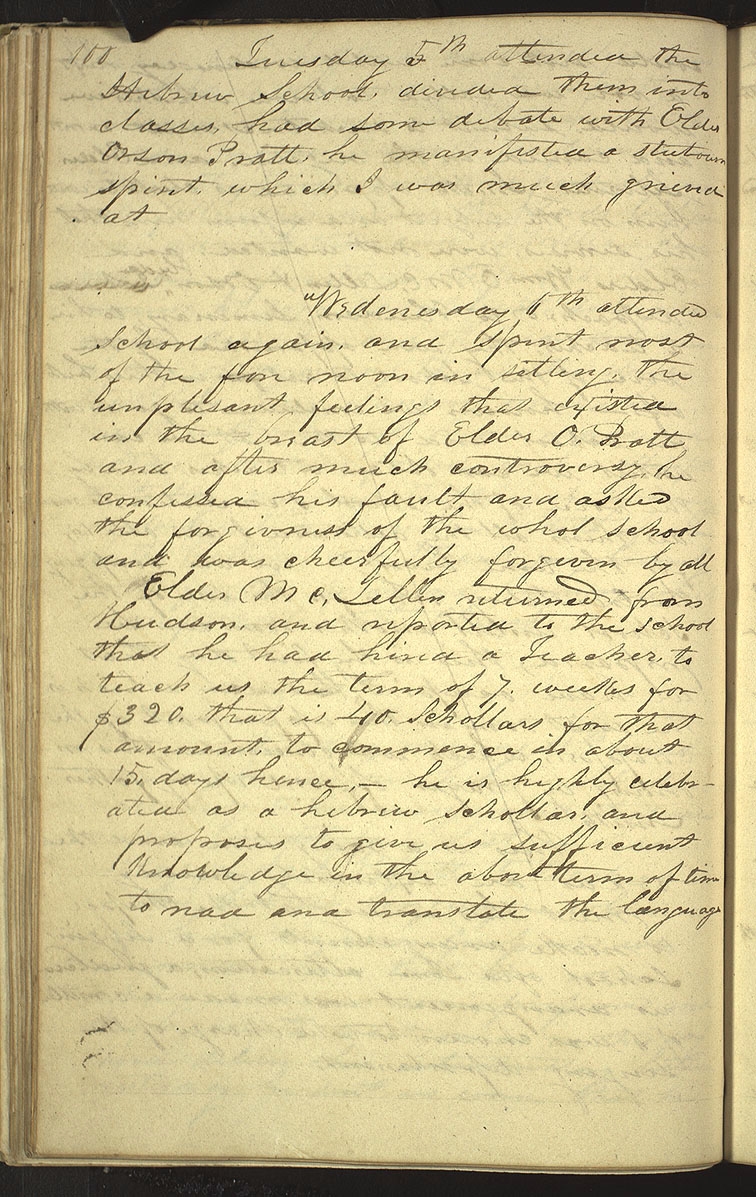 100
Tuesday 5th attended the
Hebrew School, divided them into
classes, had some debate with Elder
Orson Pratt, he manifested a stubourn
spirit, which I was much grieved
at
"Wednesday 6th attended
School again, and spent most
of the fore noon in setling, the
unplesant feelings that existed
in the breast of Elder O. Pratt
and after much controversy, he
confessed his fault and asked
the forgivness of the whol school
and was cheerfully forgiven by all
Elder Mc, Lellin returned from
Hudson, and reported to the school
that he had hired a Teacher, to
teach us the term of 7. weeks for
$320. that is 40. Schollars for that
amount, to commence in about
15, days hence,- he is highly celebr-
ated as a hebrew schollar, and
proposes to give us sufficient
Knowledge in the above term of time
to read and translate the language